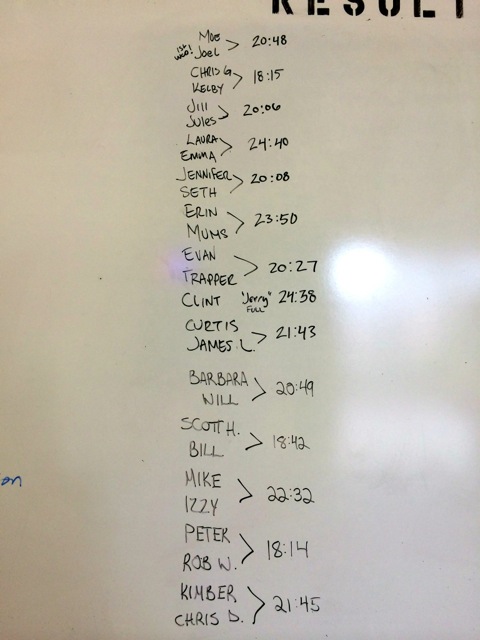 RESULT
Moe
1st WOD! Joel > 20:48
CHRIS G
KELBY > 18:15
Jill
Jules > 20:06
LAURA
EMMA > 24:40
JENNIFER
SETH > 20:08
ERIN
MUMS > 23:50
EVAN
TRAPPER > 20:27
CLINT "Jerry" FULL 24:38
CURTIS
JAMES L. > 21:43
BARBARA
WILL > 20:49
SCOTT H.
BILL > 18:42
MIKE
IZZY > 22:32
PETER
ROB W. > 18:14
KIMBER
CHRIS D. > 21:45
on